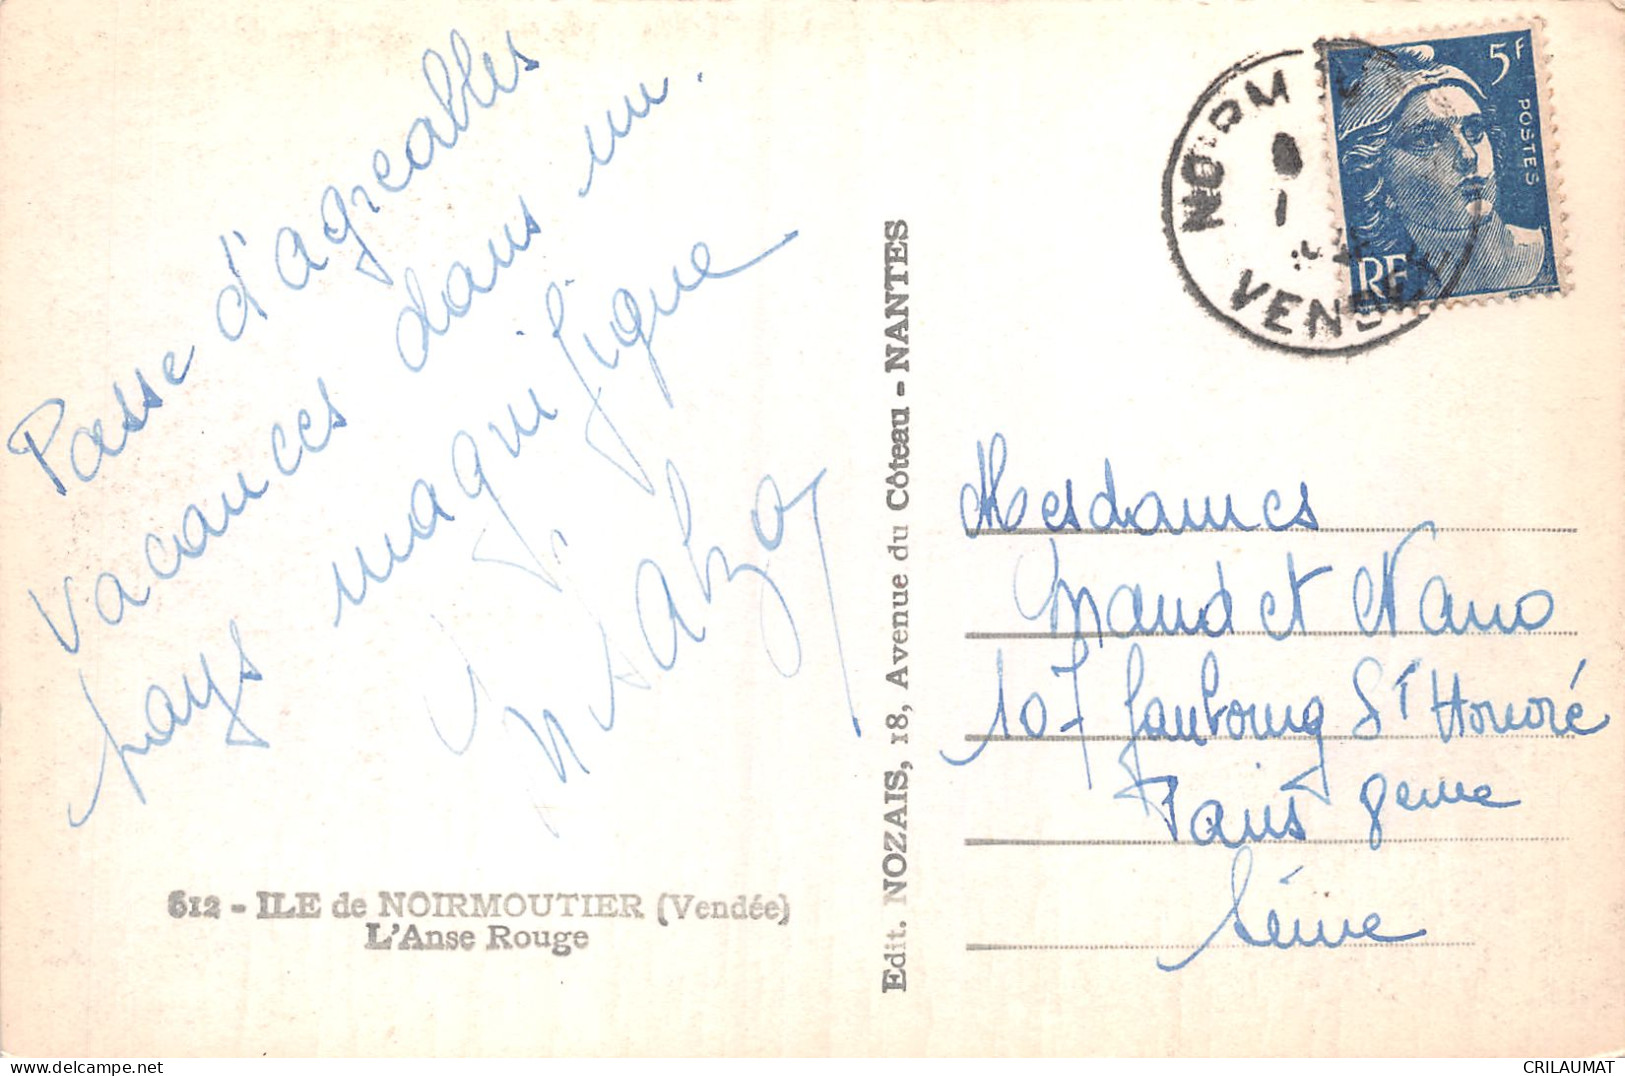 Passe d'agreables
vacances dans un.
pays magnifique
612 - ILE de NOIRMOUTIER (Vendée)
L'Anse Rouge
Edit. NOZAIS, 18, Avenue du Côteau - NANTES
5F
POSTES
RF
VENDÉE
Mesdames
et Nano
107 faubourg St Honoré
Paris 8eme
Seine
CRILAUMAT